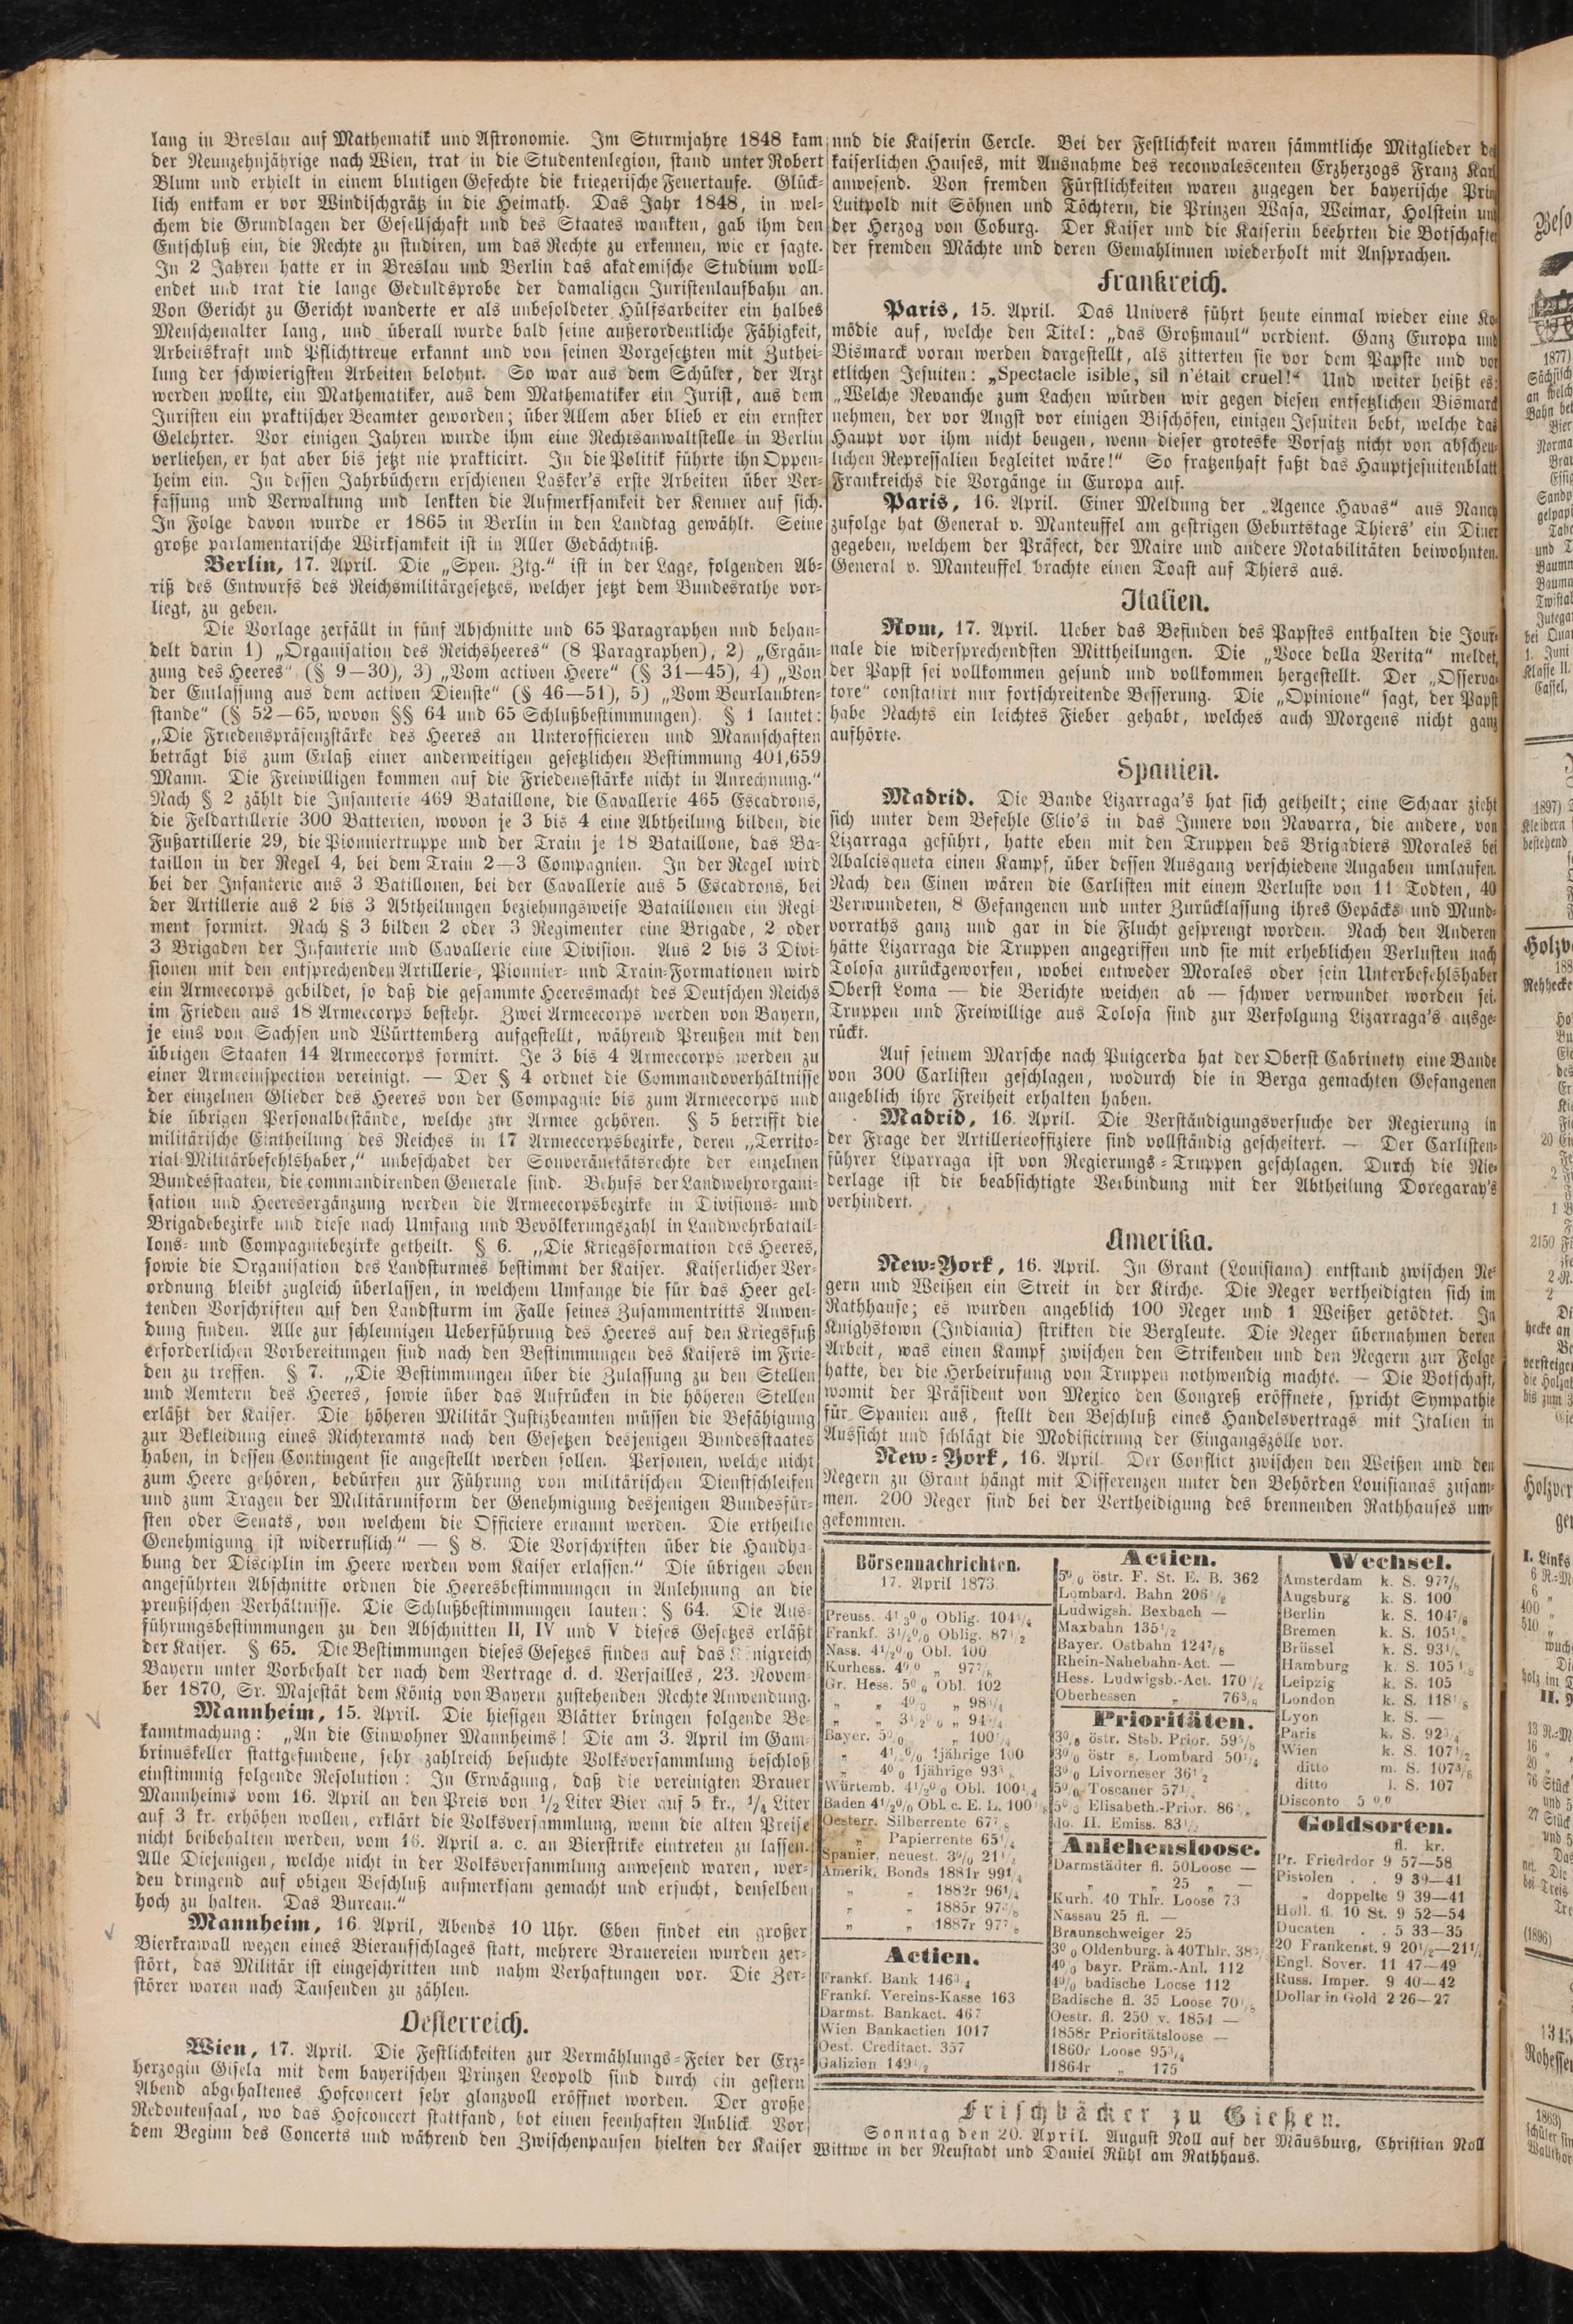 lang in Breslau auf Mathematik und Astronomie. Im Sturmjahre 1848 kam
der Neunzehnjährige nach Wien, trat in die Studentenlegion, stand unter Robert
Blum und erhielt in einem blutigen Gefechte die kriegerische Feuertaufe. Glück-
lich entkam er vor Windischgrätz in die Heimath. Das Jahr 1848, in wel-
chem die Grundlagen der Gesellschaft und des Staates wankten, gab ihm den
Entschluß ein, die Rechte zu studiren, um das Rechte zu erkennen, wie er sagte.
In 2 Jahren hatte er in Breslau und Berlin das akademische Studium voll-
endet und trat die lange Geduldsprobe der damaligen Juristenlaufbahn an.
Von Gericht zu Gericht wanderte er als unbesoldeter Hülfsarbeiter ein halbes
Menschenalter lang, und überall wurde bald seine außerordentliche Fähigkeit,
Arbeitskraft und Pflichttreue erkannt und von seinen Vorgesetzten mit Zuthei-
lung der schwierigsten Arbeiten belohnt. So war aus dem Schüler, der Arzt
werden wollte, ein Mathematiker, aus dem Mathematiker ein Jurist, aus dem
Juristen ein praktischer Beamter geworden; über Allem aber blieb er ein ernster
Gelehrter. Vor einigen Jahren wurde ihm eine Rechtsanwaltstelle in Berlin
verliehen, er hat aber bis jetzt nie prakticirt. In die Politik führte ihn Oppen-
heim ein. In dessen Jahrbüchern erschienen Lasker's erste Arbeiten über Ver-
fassung und Verwaltung und lenkten die Aufmerksamkeit der Kenner auf sich.
In Folge davon wurde er 1865 in Berlin in den Landtag gewählt. Seine
große parlamentarische Wirksamkeit ist in Aller Gedächtniß.
Berlin, 17. April. Die „Spen. Ztg.“ ist in der Lage, folgenden Ab-
riß des Entwurfs des Reichsmilitärgesetzes, welcher jetzt dem Bundesrathe vor-
liegt, zu geben.
Die Vorlage zerfällt in fünf Abschnitte und 65 Paragraphen und behan-
delt darin 1) „Organisation des Reichsheeres“ (8 Paragraphen), 2) „Ergän-
zung des Heeres“ (§ 9—30), 3) „Vom activen Heere“ (§ 31—45), 4) „Von
der Entlassung aus dem activen Dienste“ (§ 46—51), 5) „Vom Beurlaubten-
stande“ (§ 52—65, wovon §§ 64 und 65 Schlußbestimmungen). § 1 lautet:
„Die Friedenspräsenzstärke des Heeres an Unterofficieren und Mannschaften
beträgt bis zum Erlaß einer anderweitigen gesetzlichen Bestimmung 401,659
Mann. Die Freiwilligen kommen auf die Friedensstärke nicht in Anrechnung.“
Nach § 2 zählt die Infanterie 469 Bataillone, die Cavallerie 465 Escadrons,
die Feldartillerie 300 Batterien, wovon je 3 bis 4 eine Abtheilung bilden, die
Fußartillerie 29, die Pionniertruppe und der Train je 18 Bataillone, das Ba-
taillon in der Regel 4, bei dem Train 2—3 Compagnien. In der Regel wird
bei der Infanterie aus 3 Batillonen, bei der Cavallerie aus 5 Escadrons, bei
der Artillerie aus 2 bis 3 Abtheilungen beziehungsweise Bataillonen ein Regi-
ment formirt. Nach § 3 bilden 2 oder 3 Regimenter eine Brigade, 2 oder
3 Brigaden der Infanterie und Cavallerie eine Division. Aus 2 bis 3 Divi-
sionen mit den entsprechenden Artillerie-, Pionnier- und Train-Formationen wird
ein Armeecorps gebildet, so daß die gesammte Heeresmacht des Deutschen Reichs
im Frieden aus 18 Armeecorps besteht. Zwei Armeecorps werden von Bayern,
je eins von Sachsen und Württemberg aufgestellt, während Preußen mit den
übrigen Staaten 14 Armeecorps formirt. Je 3 bis 4 Armeecorps werden zu
einer Armeeinspection vereinigt. — Der § 4 ordnet die Commandoverhältnisse
der einzelnen Glieder des Heeres von der Compagnie bis zum Armeecorps und
die übrigen Personalbestände, welche zur Armee gehören. § 5 betrifft die
militärische Eintheilung des Reiches in 17 Armeecorpsbezirke, deren „Territo-
rial-Militärbefehlshaber,“ unbeschadet der Souveränetätsrechte der einzelnen
Bundesstaaten, die commandirenden Generale sind. Behufs der Landwehrorgani-
sation und Heeresergänzung werden die Armeecorpsbezirke in Divisions- und
Brigadebezirke und diese nach Umfang und Bevölkerungszahl in Landwehrbatail-
lons- und Compagniebezirke getheilt. § 6. „Die Kriegsformation des Heeres,
sowie die Organisation des Landsturmes bestimmt der Kaiser. Kaiserlicher Ver-
ordnung bleibt zugleich überlassen, in welchem Umfange die für das Heer gel-
tenden Vorschriften auf den Landsturm im Falle seines Zusammentritts Anwen-
dung finden. Alle zur schleunigen Ueberführung des Heeres auf den Kriegsfuß
erforderlichen Vorbereitungen sind nach den Bestimmungen des Kaisers im Frie-
den zu treffen. § 7. „Die Bestimmungen über die Zulassung zu den Stellen
und Aemtern des Heeres, sowie über das Aufrücken in die höheren Stellen
erläßt der Kaiser. Die höheren Militär-Justizbeamten müssen die Befähigung
zur Bekleidung eines Richteramts nach den Gesetzen desjenigen Bundesstaates
haben, in dessen Contingent sie angestellt werden sollen. Personen, welche nicht
zum Heere gehören, bedürfen zur Führung von militärischen Dienstschleifen
und zum Tragen der Militäruniform der Genehmigung desjenigen Bundesfür-
sten oder Senats, von welchem die Officiere ernannt werden. Die ertheilte
Genehmigung ist widerruflich.“ — § 8. Die Vorschriften über die Handha-
bung der Disciplin im Heere werden vom Kaiser erlassen.“ Die übrigen oben
angeführten Abschnitte ordnen die Heeresbestimmungen in Anlehnung an die
preußischen Verhältnisse. Die Schlußbestimmungen lauten: § 64. Die Aus-
führungsbestimmungen zu den Abschnitten II, IV und V dieses Gesetzes erläßt
der Kaiser. § 65. Die Bestimmungen dieses Gesetzes finden auf das Königreich
Bayern unter Vorbehalt der nach dem Vertrage d. d. Versailles, 23. Novem-
ber 1870, Sr. Majestät dem König von Bayern zustehenden Rechte Anwendung.
Mannheim, 15. April. Die hiesigen Blätter bringen folgende Be-
kanntmachung: „An die Einwohner Mannheims! Die am 3. April im Gam-
brinuskeller stattgefundene, sehr zahlreich besuchte Volksversammlung beschloß
einstimmig folgende Resolution: In Erwägung, daß die vereinigten Brauer
Mannheims vom 16. April an den Preis von 1/2 Liter Bier auf 5 kr., 1/4 Liter
auf 3 kr. erhöhen wollen, erklärt die Volksversammlung, wenn die alten Preise
nicht beibehalten werden, vom 16. April a. c. an Bierstrike eintreten zu lassen.
Alle Diejenigen, welche nicht in der Volksversammlung anwesend waren, wer-
den dringend auf obigen Beschluß aufmerksam gemacht und ersucht, denselben
hoch zu halten. Das Bureau.“
Mannheim, 16. April, Abends 10 Uhr. Eben findet ein großer
Bierkrawall wegen eines Bieraufschlages statt, mehrere Brauereien wurden zer-
stört, das Militär ist eingeschritten und nahm Verhaftungen vor. Die Zer-
störer waren nach Tausenden zu zählen.
Oesterreich.
Wien, 17. April. Die Festlichkeiten zur Vermählungs-Feier der Erz-
herzogin Gisela mit dem bayerischen Prinzen Leopold sind durch ein gestern
Abend abgehaltenes Hofconcert sehr glanzvoll eröffnet worden. Der große
Redoutensaal, wo das Hofconcert stattfand, bot einen feenhaften Anblick. Vor
dem Beginn des Concerts und während den Zwischenpausen hielten der Kaiser
und die Kaiserin Cercle. Bei der Festlichkeit waren sämmtliche Mitglieder
kaiserlichen Hauses, mit Ausnahme des reconvalescenten Erzherzogs Franz Karl
anwesend. Von fremden Fürstlichkeiten waren zugegen der bayerische Prin
Luitpold mit Söhnen und Töchtern, die Prinzen Wasa, Weimar, Holstein und
der Herzog von Coburg. Der Kaiser und die Kaiserin beehrten die Botschafter
der fremden Mächte und deren Gemahlinnen wiederholt mit Ansprachen.
Frankreich.
Paris, 15. April. Das Univers führt heute einmal wieder eine Ko-
mödie auf, welche den Titel: „das Großmaul“ verdient. Ganz Europa und
Bismarck voran werden dargestellt, als zitterten sie vor dem Papste und vor
etlichen Jesuiten: „Spectacle isible, sil n'était cruel!“ Und weiter heißt es:
„Welche Revanche zum Lachen würden wir gegen diesen entsetzlichen Bismarck
nehmen, der vor Angst vor einigen Bischöfen, einigen Jesuiten bebt, welche das
Haupt vor ihm nicht beugen, wenn dieser groteske Vorsatz nicht von abscheu-
lichen Repressalien begleitet wäre!“ So fratzenhaft faßt das Hauptjesuitenblatt
Frankreichs die Vorgänge in Europa auf.
Paris, 16. April. Einer Meldung der „Agence Havas“ aus Nancy
zufolge hat General v. Manteuffel am gestrigen Geburtstage Thiers' ein Diner
gegeben, welchem der Präfect, der Maire und andere Notabilitäten beiwohnten.
General v. Manteuffel brachte einen Toast auf Thiers aus.
Italien.
Rom, 17. April. Ueber das Befinden des Papstes enthalten die Jour-
nale die widersprechendsten Mittheilungen. Die „Voce della Verita“ meldet,
der Papst sei vollkommen gesund und vollkommen hergestellt. Der „Osserva-
tore“ constatirt nur fortschreitende Besserung. Die „Opinione“ sagt, der Papst
habe Nachts ein leichtes Fieber gehabt, welches auch Morgens nicht ganz
aufhörte.
Spanien.
Madrid. Die Bande Lizarraga's hat sich getheilt; eine Schaar zieht
sich unter dem Befehle Elio's in das Innere von Navarra, die andere, von
Lizarraga geführt, hatte eben mit den Truppen des Brigadiers Morales bei
Abalcisqueta einen Kampf, über dessen Ausgang verschiedene Angaben umlaufen.
Nach den Einen wären die Carlisten mit einem Verluste von 11 Todten, 40
Verwundeten, 8 Gefangenen und unter Zurücklassung ihres Gepäcks und Mund-
vorraths ganz und gar in die Flucht gesprengt worden. Nach den Anderen
hätte Lizarraga die Truppen angegriffen und sie mit erheblichen Verlusten nach
Tolosa zurückgeworfen, wobei entweder Morales oder sein Unterbefehlshaber
Oberst Loma — die Berichte weichen ab — schwer verwundet worden sei.
Truppen und Freiwillige aus Tolosa sind zur Verfolgung Lizarraga's ausge-
rückt.
Auf seinem Marsche nach Puigcerda hat der Oberst Cabrinety eine Bande
von 300 Carlisten geschlagen, wodurch die in Berga gemachten Gefangenen
angeblich ihre Freiheit erhalten haben.
Madrid, 16. April. Die Verständigungsversuche der Regierung in
der Frage der Artillerieoffiziere sind vollständig gescheitert. — Der Carlisten-
führer Liparraga ist von Regierungs-Truppen geschlagen. Durch die Nie-
derlage ist die beabsichtigte Verbindung mit der Abtheilung Doregaray's
verhindert.
Amerika.
New-York, 16. April. In Grant (Louisiana) entstand zwischen Ne-
gern und Weißen ein Streit in der Kirche. Die Neger vertheidigten sich im
Rathhause; es wurden angeblich 100 Neger und 1 Weißer getödtet. In
Knighstown (Indiania) strikten die Bergleute. Die Neger übernahmen deren
Arbeit, was einen Kampf zwischen den Strikenden und den Negern zur Folge
hatte, der die Herbeirufung von Truppen nothwendig machte. — Die Botschaft,
womit der Präsident von Mexico den Congreß eröffnete, spricht Sympathie
für Spanien aus, stellt den Beschluß eines Handelsvertrags mit Italien in
Aussicht und schlägt die Modificirung der Eingangszölle vor.
New-York, 16. April. Der Conflict zwischen den Weißen und den
Negern zu Grant hängt mit Differenzen unter den Behörden Louisianas zusam-
men. 200 Neger sind bei der Vertheidigung des brennenden Rathhauses um-
gekommen.
Börsennachrichten.
17. April 1873.
Preuss. Oblig. 104 1/4
Frankf. 3 1/2% Oblig. 87 1/2
Nass. 4 1/2% Obl. 100
Kurhess. 4% „ 97 7/8
Gr. Hess. 5% Obl. 102
„ „ 4% „ 98 1/4
„ „ 3 1/2% „ 94 1/4
Bayer. 5% „ 100 1/4
„ 4 1/2% 1jährige 100
„ 4% 1jährige
Würtemb. 4 1/2% Obl. 100 1/4
Baden 4 1/2% Obl. c. E. L. 100
Oesterr. Silberrente 67 7/8
„ Papierrente 65 1/4
Spanier, neuest. 3% 21 1/2
Amerik. Bonds 1881r 99 1/4
„ „ 1882r 96 1/4
„ „ 1885r
„ „ 1887r 97 7/8
Actien.
Frankf. Bank 146 3/4
Frankf. Vereins-Kasse 163
Darmst. Bankact. 467
Wien Bankactien 1017
Oest. Creditact. 357
Galizien 149 1/2
Actien.
5% östr. F. St. E. B. 362
Lombard. Bahn 206 1/2
Ludwigsh. Bexbach —
Maxbahn 135 1/2
Bayer. Ostbahn 124 7/8
Rhein-Nahebahn-Act. —
Hess. Ludwigsb.-Act. 170 1/2
Oberhessen „ 76 3/8
Prioritäten.
3% östr. Stsb. Prior. 59 5/8
3% östr s. Lombard 50 1/4
3% Livorneser 36 1/2
5% Toscaner 57 1/4
5% Elisabeth.-Prior. 86
do. II. Emiss. 83 1/2
Anlehensloose.
Darmstädter fl. 50Loose —
„ „ 25 „ —
Kurh. 40 Thlr. Loose 73
Nassau 25 fl. —
Braunschweiger 25
3% Oldenburg. à 40Thlr. 38
4% bayr. Präm.-Anl. 112
4% badische Loose 112
Badische fl. 35 Loose 70
Oestr. fl. 250 v. 1854 —
1858r Prioritätsloose —
1860r Loose 95 3/4
1864r „ 175
Wechsel.
Amsterdam k. S. 97 7/8
Augsburg k. S. 100
Berlin k. S. 104 7/8
Bremen k. S. 105
Brüssel k. S. 93
Hamburg k. S. 105
Leipzig k. S. 105
London k. S. 118
Lyon k. S. —
Paris k. S. 92 3/4
Wien k. S. 107 1/2
ditto m. S. 107 3/8
ditto l. S. 107
Disconto 5%
Goldsorten.
fl. kr.
Pr. Friedrdor 9 57—58
Pistolen . . 9 39—41
„ doppelte 9 39—41
Holl. fl. 10 St. 9 52—54
Ducaten . . 5 33—35
20 Frankenst. 9 20 1/2—21 1/2
Engl. Sover. 11 47—49
Russ. Imper. 9 40—42
Dollar in Gold 2 26—27
Frischbäcker zu Gießen.
Sonntag den 20. April. August Noll auf der Mäusburg, Christian Noll
Wittwe in der Neustadt und Daniel Rühl am Rathhaus.